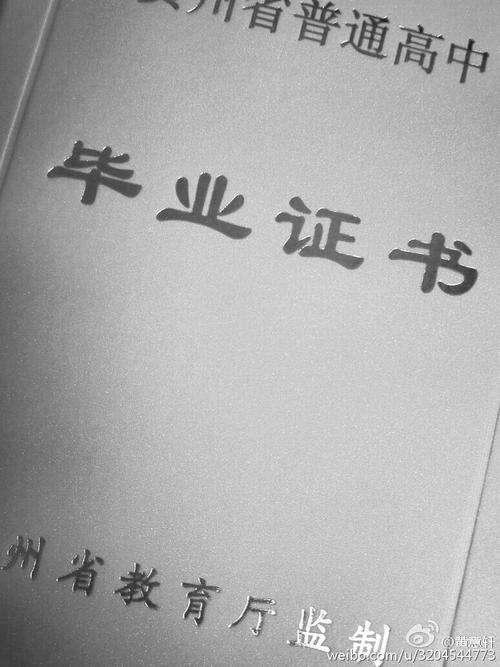 州省普通高中
毕业证书
州省教育厅监制
@黄意轩
weibo.com/u/3204544773